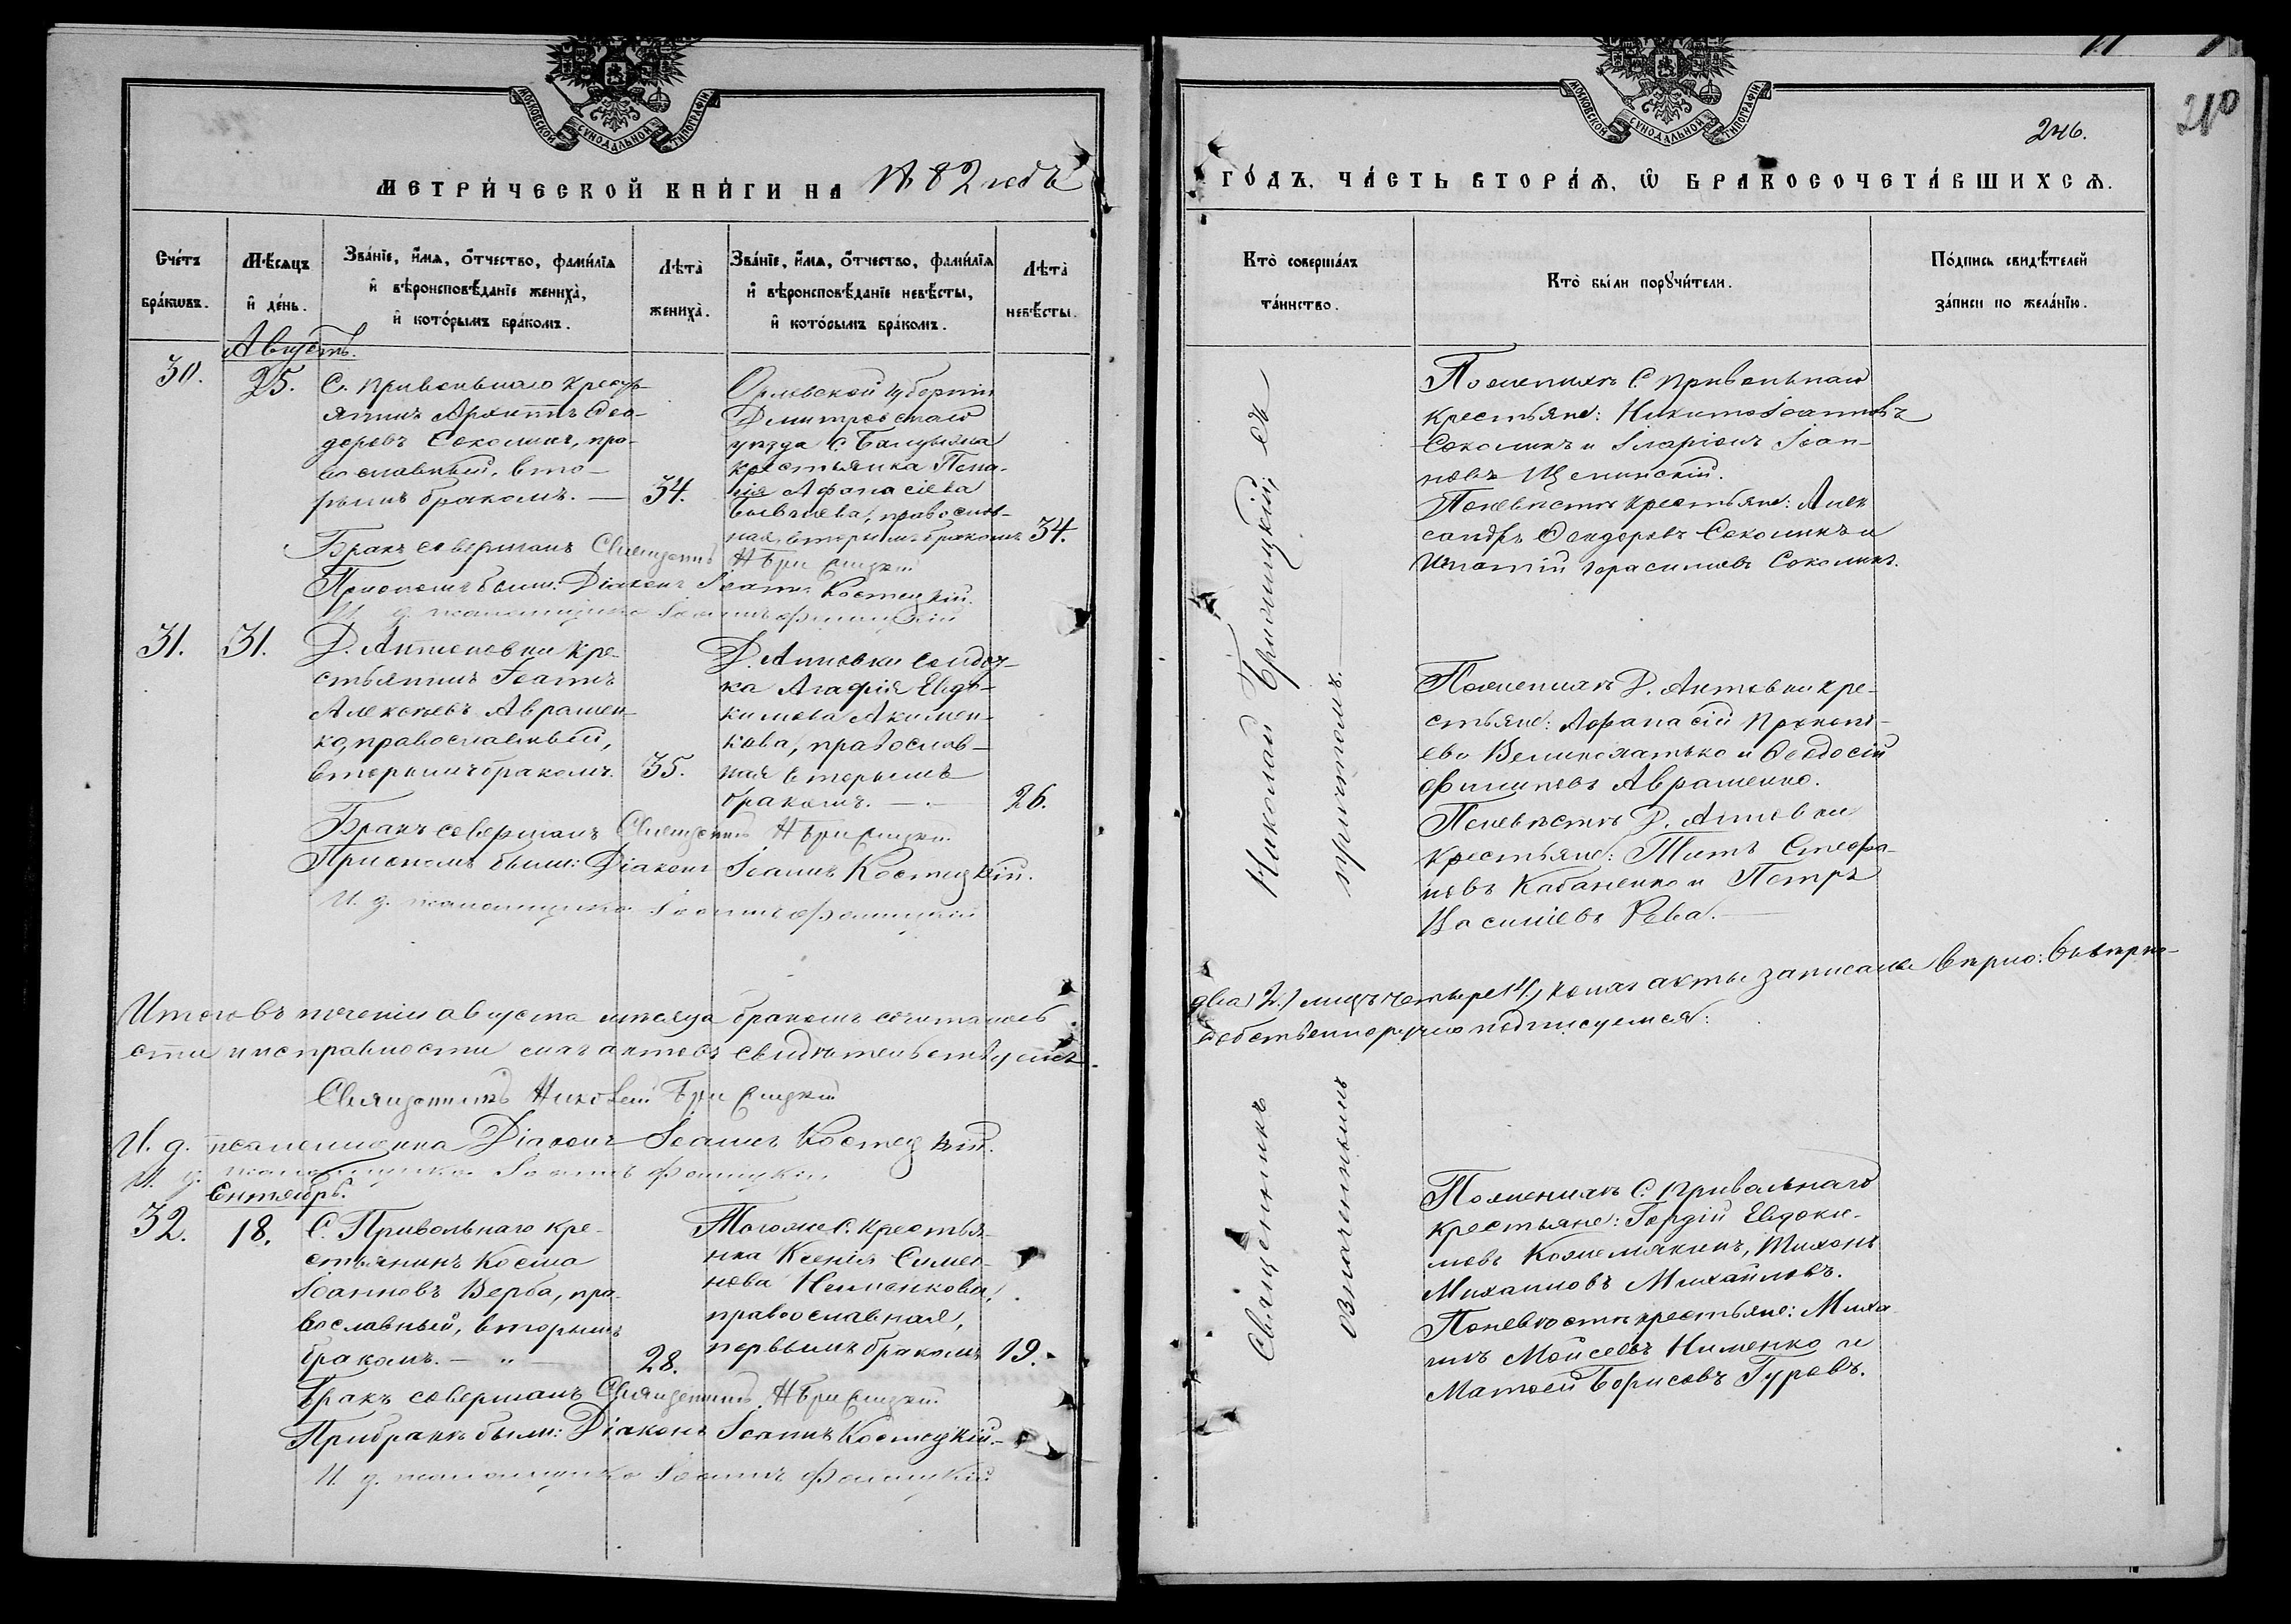 МОСКОВСКОЙ СѴНОДАЛЬНОЙ ТИПОГРАФІИ
МЕТРИ́ЧЕСКОЙ КНИ́ГИ НА 1882 годъ
Сче́тъ бра́кωвъ.
Мѣ́сяцъ и҆ де́нь.
Зва́нїе, и҆́мѧ, о҆́тчество, фами́лїѧ
и҆ вѣроисповѣ́данїе жениха̀,
и҆ кото́рымъ бра́комъ.
Лѣта̀ жениха̀.
Зва́нїе, и҆́мѧ, о҆́тчество, фами́лїѧ
и҆ вѣроисповѣ́данїе невѣ́сты,
и҆ кото́рымъ бра́комъ.
Лѣта̀ невѣ́сты.
Августъ.
30.
25.
С. Привольнаго кресть-
янинъ Архиппъ Ѳео-
доровъ Соколинъ, пра-
вославный, вто-
рымъ бракомъ. —
34.
Орловской губерніи
Дмитровскаго
уѣзда С.
крестьянка Пела-
гія Афанасіева
православ-
ная, вторымъ бракомъ
34.
Бракъ совершалъ Священникъ Н Бриллицкій
При семъ были: Діаконъ Іоаннъ Костецкій.
И. д. псаломщика Іоаннъ
31.
31.
Д. Антоновки кре-
стьянинъ Іоаннъ
Алексѣевъ Авра­мен-
ко, православный,
вторымъ бракомъ.
35.
Д. Анновки солдат-
ка Агафія Евдо-
кимова Акимен-
кова, православ-
ная вторымъ
бракомъ. —
26.
Бракъ совершалъ Священникъ Н Бриллицкій
При семъ были: Діаконъ Іоаннъ Костецкій.
И. д. псаломщика Іоаннъ
Итого въ теченіи августа мѣсяца бракомъ сочиталось
сти и исправности сихъ актовъ свидѣтельствуемъ
Священникъ Николай Бриллицкій
И. д. псаломщика Діаконъ Іоаннъ Костецкій.
И. д. псаломщика Іоаннъ
Сентябрь.
32.
18.
С. Привольнаго кре-
стьянинъ Косма
Іоанновъ Верба, пра-
вославный, вторымъ
бракомъ. — " —
28.
Тогоже С. крестья-
нка Ксенія Симео-
нова Нименкова,
православная,
первымъ бракомъ
19.
Бракъ совершалъ Священникъ Н Бриллицкій
При бракѣ были: Діаконъ Іоаннъ Костецкій.
И. д. псаломщика Іоаннъ
МОСКОВСКОЙ СѴНОДАЛЬНОЙ ТИПОГРАФІИ
246.
210
ГО́ДЪ, ЧА́СТЬ ВТОРА́Ѧ, Ѽ БРАКОСОЧЕТА́ВШИХСѦ.
Кто̀ соверша́лъ та́инство.
Кто̀ бы́ли порꙋчи́тели.
По́дпись свидѣ́телей за́писи по жела́нїю.
Священникъ Николай Бриллицкій, съ
означеннымъ причтомъ.
По женихѣ С. Привольнаго
крестьяне: Никита Іоанновъ
Соколинъ и Іларіонъ Іоан-
новъ Щепинскій.
По невѣстѣ крестьяне: Алек
сандръ Ѳеодоровъ Соколинъ и
Игнатій Герасимовъ Соколинъ.
По женихѣ Д. Антоновки кре-
стьяне: Афанасій Прокопі-
евъ Великохатько и Ѳеодосій
Филиповъ Авраменко.
По невѣстѣ Д. Анновки
крестьяне: Титъ Стефа-
новъ Кабаненко и Петръ
Василіевъ Рева. —
два (2.) лицъ четыре (4), коихъ акты записаны вѣрно: въ вѣрно-
собственноручно подписуемся:
По женихѣ С. Привольнаго
крестьяне: Гордій Евдоки-
мовъ Кожемякинъ, Тихонъ
Михаиловъ Михайловъ.
По невѣстѣ крестьяне: Миха-
илъ Моисеевъ Нименко и
Матѳей Борисовъ Гуровъ.